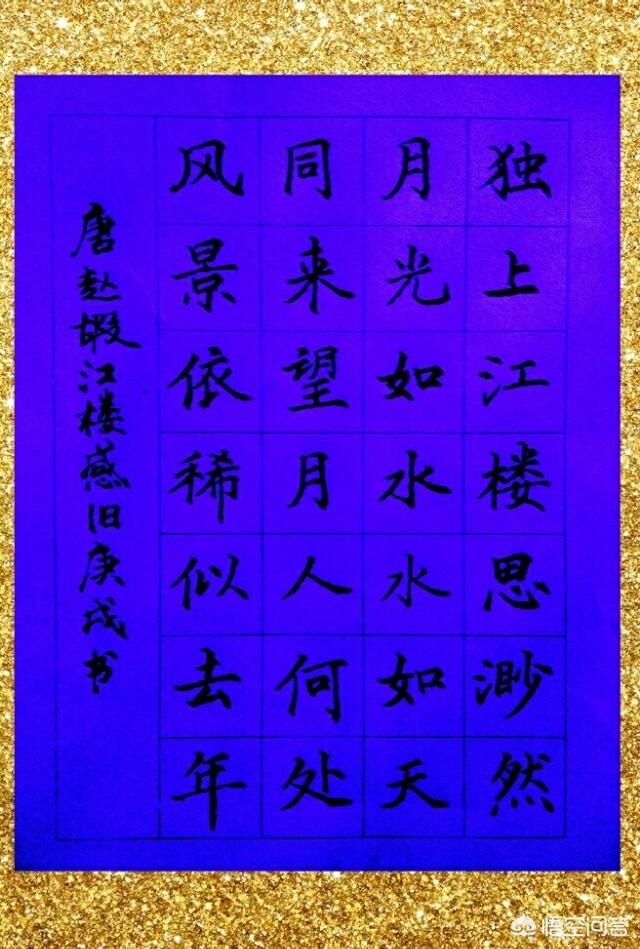 独上江楼思渺然
月光如水水如天
同来望月人何处
风景依稀似去年
唐赵嘏江楼感旧庚戌书
悟空问答